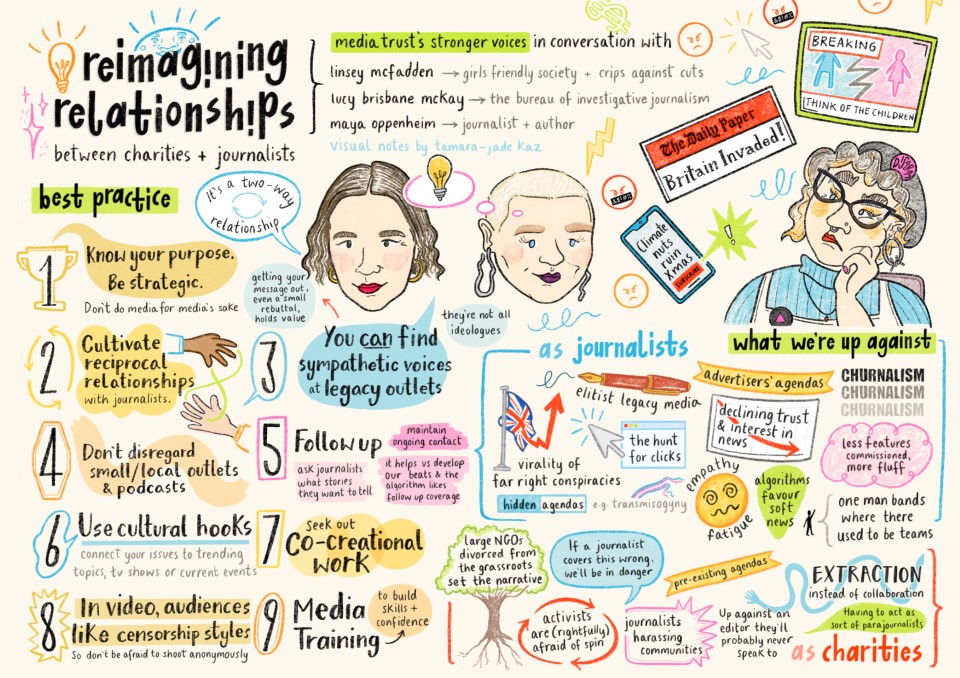 reimag!ning
relationsh!ps
between charities + journalists
media trust's stronger voices in conversation with
linsey mcfadden → girls friendly society + crips against cuts
lucy brisbane mckay → the bureau of investigative journalism
maya oppenheim → journalist + author
visual notes by tamara-jade kaz
BREAKING
THINK OF THE CHILDREN
The Daily Paper
Britain Invaded!
Climate
nuts
ruin
Xmas
SUBSCRIBE
!
best practice
It's a two-way
relationship
1
Know your purpose.
Be strategic.
Don't do media for media's sake
getting your
message out,
even a small
rebuttal,
holds value
they're not all
ideologues
2
Cultivate
reciprocal
relationships
with journalists.
3
You can find
sympathetic voices
at legacy outlets
4
Don't disregard
small/local outlets
& podcasts
5
Follow up
maintain
ongoing contact
ask journalists
what stories
they want to tell
it helps us develop
our beats & the
algorithm likes
follow up coverage
6
Use cultural hooks
connect your issues to trending
topics, tv shows or current events
7
Seek out
Co-creational
work
8
In video, audiences
like censorship styles
So don't be afraid to shoot anonymously
9
Media
Training
to build
skills +
confidence
what we're up against
as journalists
elitist legacy media
advertisers' agendas
CHURNALISM
CHURNALISM
CHURNALISM
declining trust
& interest in
news
virality of
far right conspiracies
the hunt
for clicks
hidden agendas e.g. transmisogyny
empathy
fatigue
algorithms
favour
soft
news
less features
commissioned,
more fluff
one man bands
where there
used to be teams
large NGOs
divorced from
the grassroots
set the narrative
If a journalist
covers this wrong,
we'll be in danger
activists
are (rightfully)
afraid of spin
journalists
harassing
communities
pre-existing agendas
Up against an
editor they'll
probably never
speak to
EXTRACTION
instead of collaboration
Having to act as
sort of parajournalists
as charities